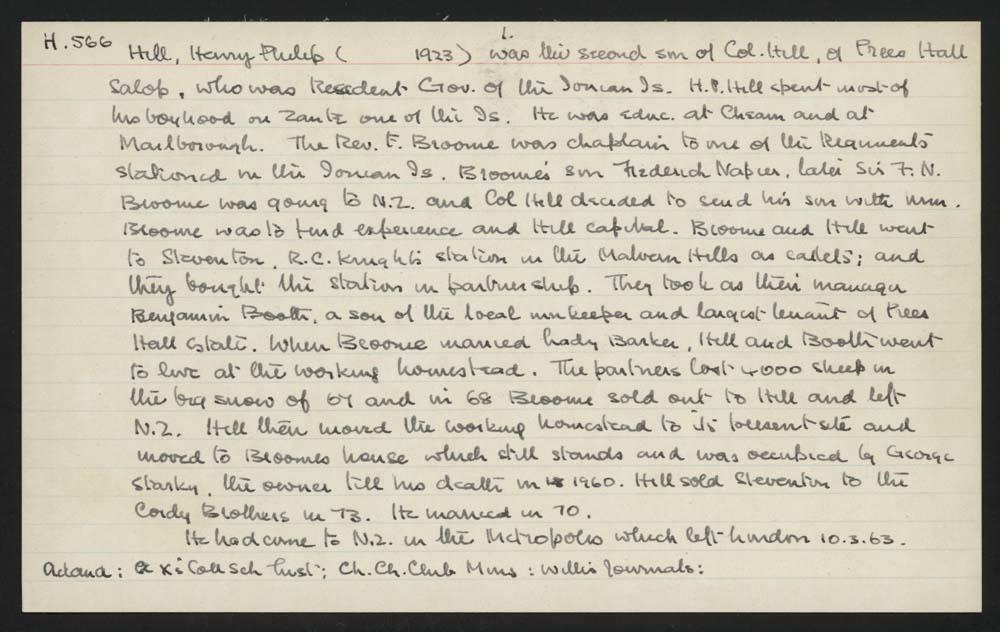 1.
H.566 Hill, Henry Philip ( 1923) was the second son of Col. Hill, of Prees Hall
Salop, who was Resident Gov. of the Ionian Is. H.P. Hill spent most of
his boyhood on Zante one of the Is. He was educ. at Cheam and at
Marlborough. The Rev. F. Broome was chaplain to one of the Regiments
stationed in the Ionian Is. Broome's son Frederick Napier, later Sir F.N.
Broome was going to N.Z. and Col Hill decided to send his son with him.
Broome was to find experience and Hill capital. Broome and Hill went
to Steventon, R.C. Knight's station in the Malvern Hills as cadets; and
they bought the station in partnership. They took as their manager
Benjamin Booth, a son of the local innkeeper and largest tenant of Prees
Hall Estate. When Broome married Lady Barker, Hill and Booth went
to live at the working homestead. The partners lost 4000 sheep in
the big snow of 67 and in 68 Broome sold out to Hill and left
N.Z. Hill then moved the working homestead to its present site and
moved to Broomes house which still stands and was occupied by George
Starky, the owner till his death in 1960. Hill sold Steventon to the
Cordy Brothers in 73. He married in 70.
He had come to N.Z. in the Metropolis which left London 10.3.63.
Acland: Xs Coll Sch List; Ch.Ch. Club Mins: Willis Journals: